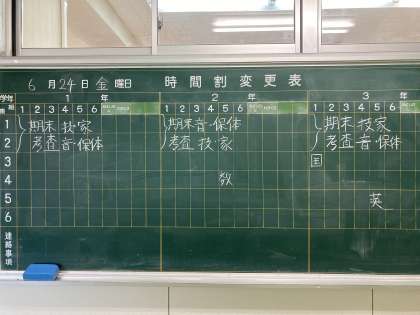 6月24日金曜日 時間割変更表
学年 1年 2年 3年
1 2 3 4 5 6 1 2 3 4 5 6 1 2 3 4 5 6
1 期末 技・家 期末 音・保体 期末 技・家
2 考査 音・保体 考査 技・家 考査 音・保体
3 国
4 数
5 英
6
連絡事項